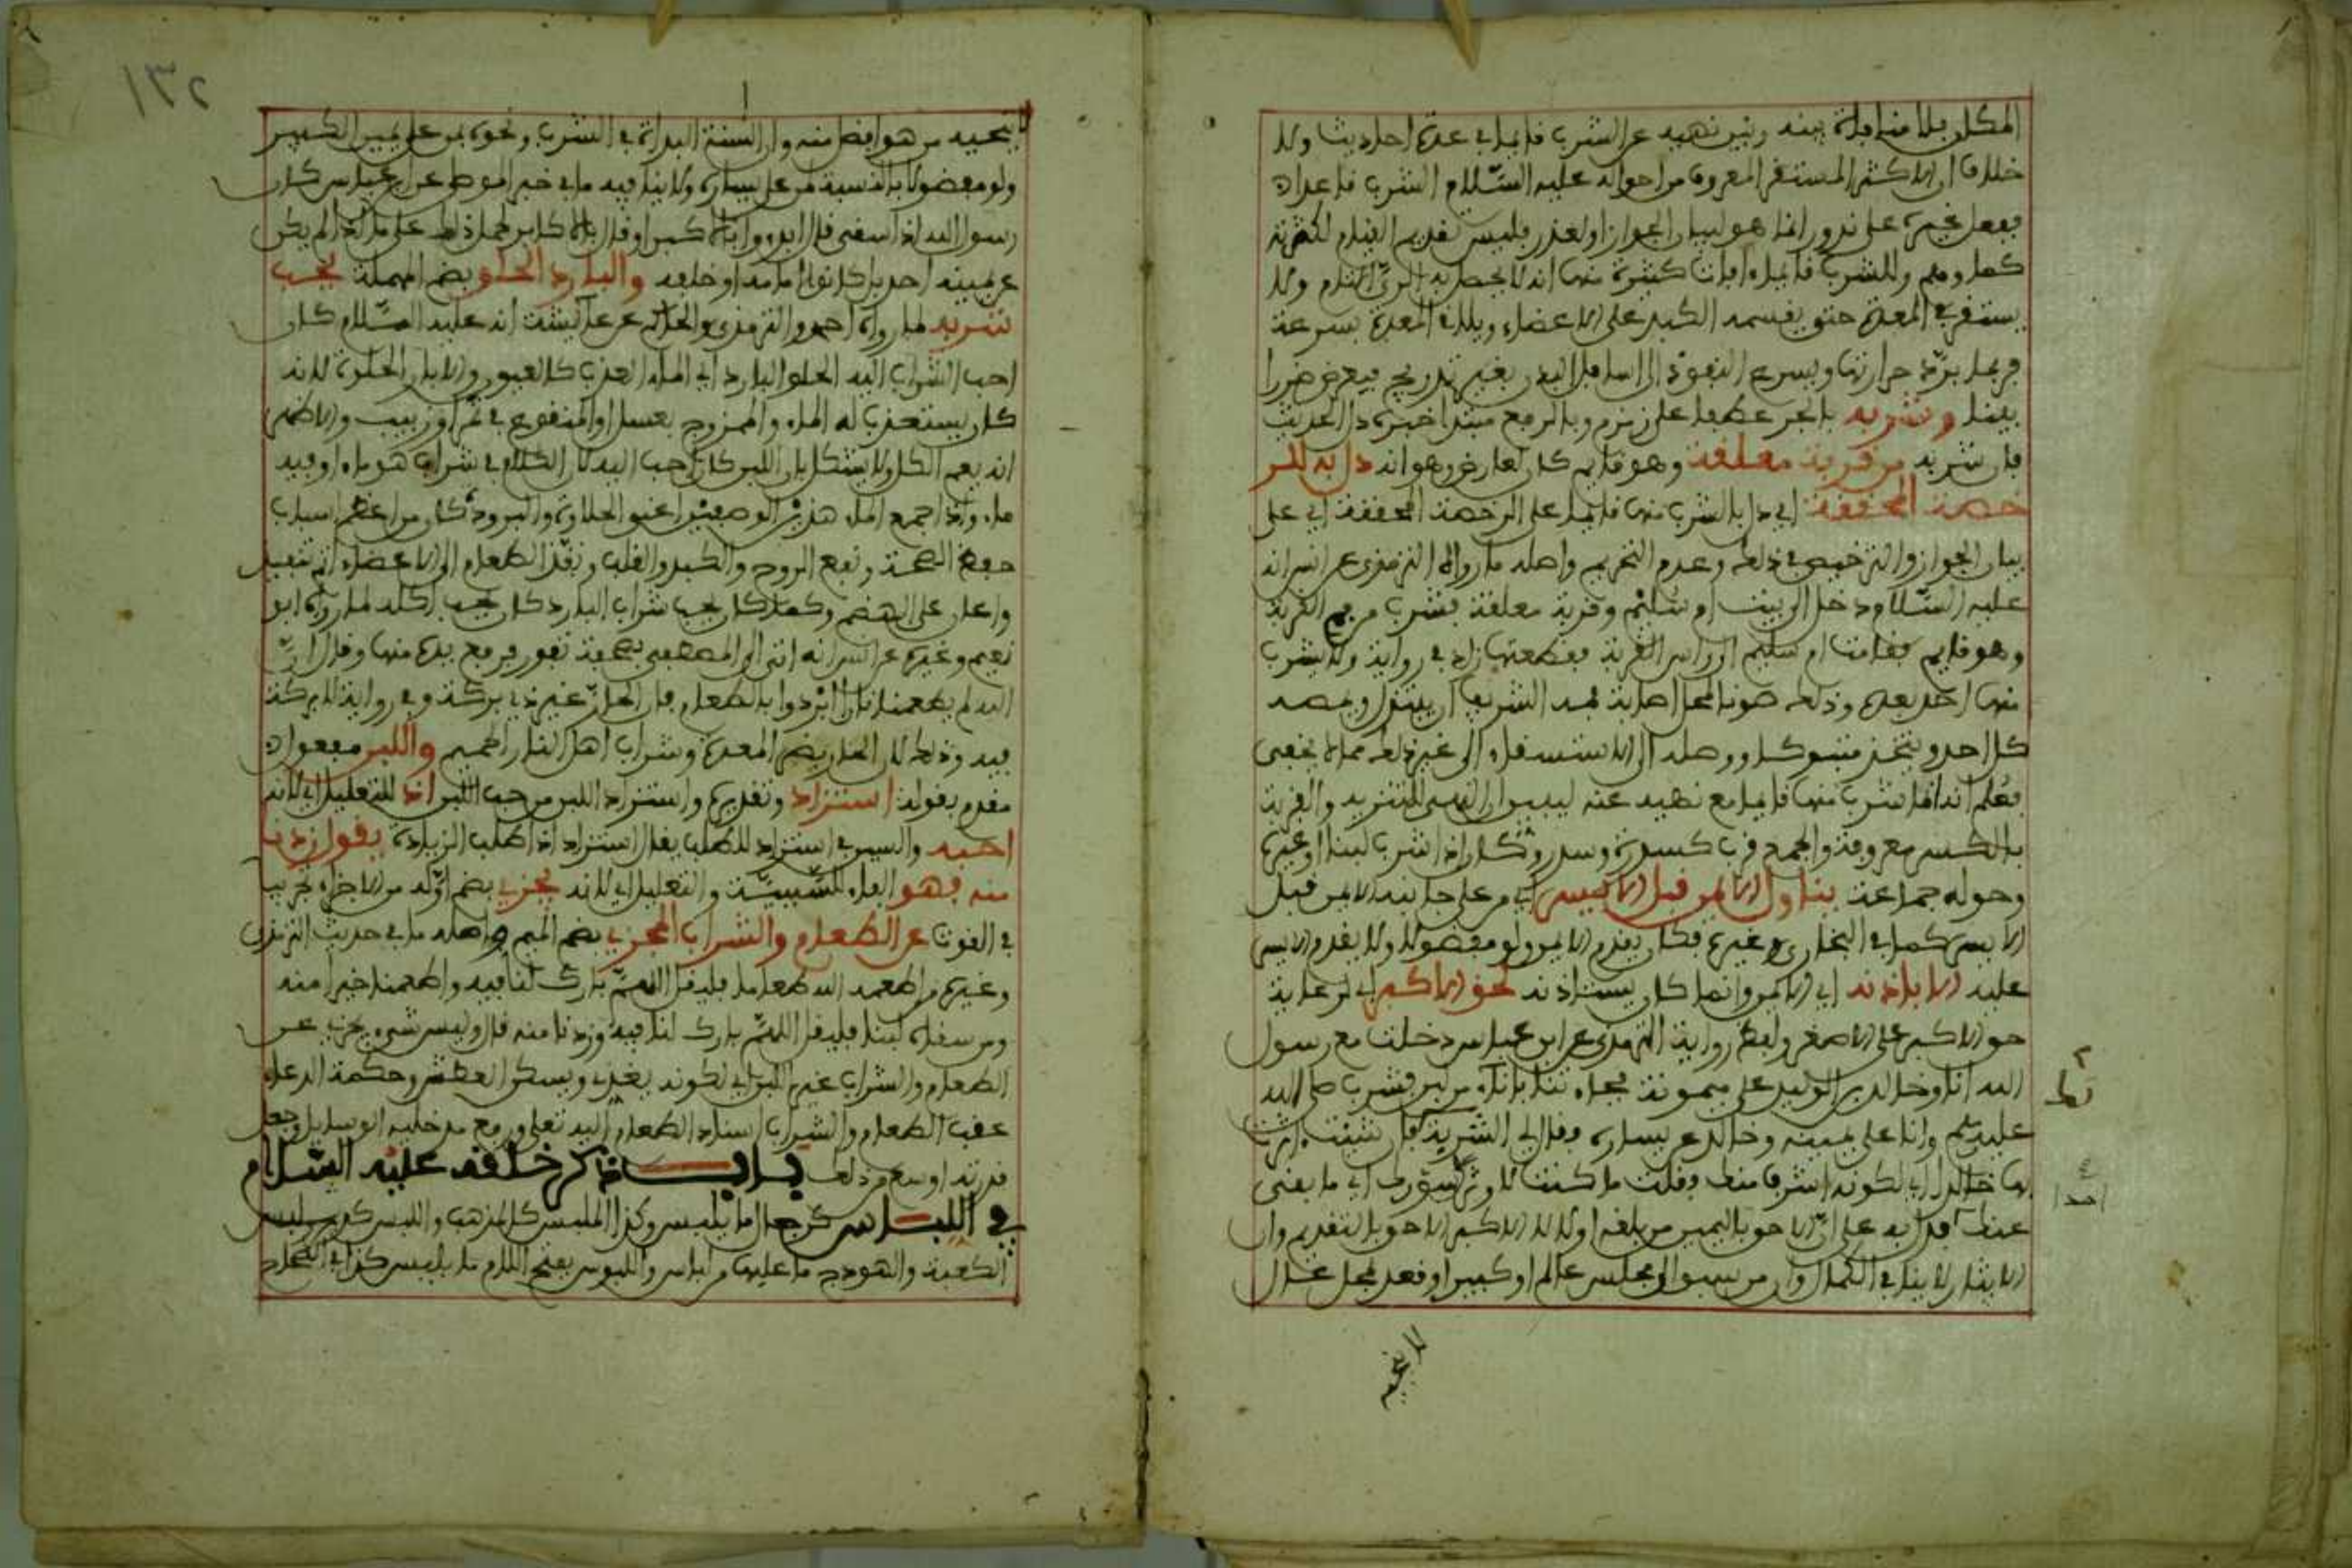 المكان فلا منافاة بينه وبين نهيه عن الشرب قائما في عدة احاديث ولا
خلاف ان الاكثر المستقر المعروف من احواله عليه السّلام الشرب قاعدا
بفعل غيره على ندور انما هو لبيان الجواز او لعذر فليس تقديم القيام لكثرته
كما وهم وللشرب قائما آفات كثيرة منها انه لا يحصل به الريّ التام ولا
يستقر في المعدة حتى يقسمه الكبد على الاعضاء ويلاقي المعدة بسرعة
فربما برّد حرارتها ويسرع النفوذ الى اسافل البدن بغير تدريج فيعرض ضررا
بينا وشربه بالجر عطفا على زمزم وبالرفع مبتدا خبره دل الحديث
بان شربه من قربة معلقة وهو قايم كان لعارض وهو انه دل به للر
خصة المحققة اي دل بالشرب منها قائما على الرخصة المحققة اي على
بيان الجواز والترخيص في ذلك وعدم التحريم واصله ما رواه الترمذي عن انس انه
عليه السّلام دخل الى بيت ام سليم وقربة معلقة فشرب من فم القربة
وهو قايم فقامت ام سليم الى راس القربة فقطعتها زاد في رواية ولا يشرب
منها احد بعده وذلك صونا لمحل اصابة فمه الشريف ان يبتذل ويمسه
كل احد ويتخذ متبركا ووصلة الى الاستشفاء الى غير ذلك مما لا يخفى
فعلم انه انما شرب منها قائما مع نهيه عنه ليبين ان النهي للتنزيه والقربة
بالكسر معروفة والجمع قرب كسدرة وسدر وكان اذا شرب لبنا او غيره
وحوله جماعة يناول الايمن قبل الايسر اي من على جانبه الايمن قبل
الايسر كما في البخاري وغيره فكان يقدم الايمن ولو مفضولا ولا يقدم الايسر
عليه الا باذنه اي الايمن وانما كان يستاذنه لحق الاكبر اي لرعاية
حق الاكبر على الاصغر ولفظ رواية الترمذي عن ابن عباس دخلت مع رسول
الله انا وخالد بن الوليد على ميمونة فجاءتنا باناء من لبن فشرب صلى الله
عليه وسلم وانا على يمينه وخالد عن يساره فقال لي الشربة لك فان شئت اثرت
بها خالدا اي لكونه اشرف منك فقلت ما كنت لاوثر بسؤرك اي ما بقي
عنك افاد به على ان الاحق باليمين من بلغه اولا لا الاكبر الاحق بالتقديم وان
الايثار لا ينافي الكمال وان من سبق الى مجلس عالم او كبير او قعد لمحل عال
لا ينحيه
١٣٢
لا ينحيه من هو افضل منه وان السنة البداة في الشرب ونحوه بمن على يمين الكبير
ولو مفضولا بالنسبة لمن على يساره ولا ينافيه ما في خبر الموطا عن ابن عباس كان
رسول الله اذا سقى قال ابدءوا بالكبير او قال بالاكابر لحمل ذلك على ما اذا لم يكن
عن يمينه احد بل كانوا امامه او خلفه والبارد الحلو بضم المهملة يحب
شربه لما رواه احمد والترمذي والحاكم عن عائشة انه عليه السّلام كان
احب الشراب اليه الحلو البارد اي الماء العذب كالعيون والابار الحلوة لانه
كان يستعذب له الماء والممزوج بعسل او المنقوع في تمر او زبيب والاظهر
انه يعم الكل ولا يشكل بان اللبن كان احب اليه لان الكلام في شراب هو ماء او فيه
ماء واذا جمع الماء هذين الوصفين اعني الحلاوة والبرودة كان من اعظم اسباب
حفظ الصحة ونفع الروح والكبد والقلب ونفّذ الطعام الى الاعضاء اتم تنفيذ
واعان على الهضم وكما كان يحب شراب البارد كان يحب اكله لما رواه ابو
نعيم وغيره عن انس انه اتى الى المصطفى بصحفة تفور فرفع يده منها وقال انّ
الله لم يطعمنا نارا ابردوا بالطعام فان الحارّ غير ذي بركة وفي رواية لا بركة
فيه وذلك لان الحار يضر المعدة وشراب اهل النار الحميم واللبن مفعول
مقدم بقوله استزاد وتقديره واستزاد اللبن من حب اللبن اذ للتعليل اي لانه
احبه والسين في استزاد للطلب يقال استزاد اذا طلب الزيادة يقول زدنا
منه فهو الفاء للسّببيّة والتعليل اي لانه يجزي بضم اوّله من الاجزاء يجزئ
في القوت عن الطعام والشراب المجزي بضم الميم واصله ما في حديث الترمذي
وغيره من اطعمه الله طعاما فليقل اللهمّ بارك لنا فيه واطعمنا خيرا منه
ومن سقاه لبنا فليقل اللهمّ بارك لنا فيه وزدنا منه قال وليس شيء يجزئ عن
الطعام والشراب غير اللبن اي لكونه يغذي ويسكن العطش وحكمة الدعاء
عقب الطعام والشراب اسناد الطعام اليه تعلى ورفع مدخلية الوسايل وجعل
قدرته اوسع من ذلك بــاب ذكر خلقه عليه السّلام
في اللبــاس ككرجعال ما يلبس وكذا الملبس كالمذهب واللبس كدبس لبس
الكعبة والهودج ما عليهما من لباس واللبوس بفتح اللام ما يلبس كذا في الصحاح